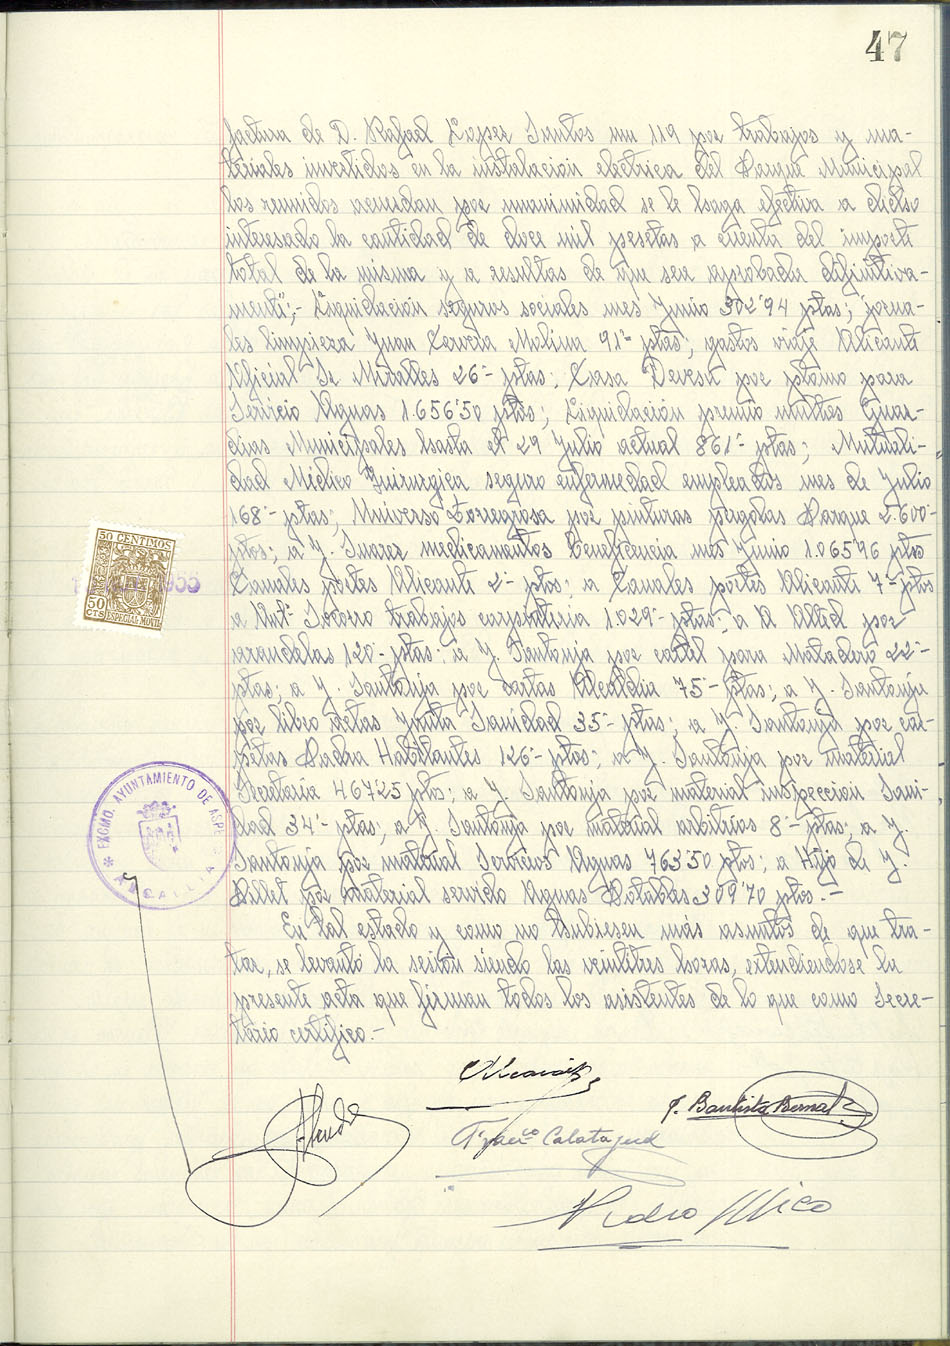 47
factura de D. Rafael Lopez Santos nu 119 por trabajos y ma-
teriales invertidos en la instalacion electrica del Parque Municipal
los reunidos acuerdan por unanimidad se le haga efectiva a dicho
interesado la cantidad de doce mil pesetas a cuenta del importe
total de la misma y a resultas de que sea aprobada difinitiva-
mente",- Liquidación seguros sociales mes Junio 302'94 ptas; jorna-
les limpieza Juan Cerverá Molina 91'- ptas; gastos viaje Alicante
Oficial Sr Miralles 26'- ptas; Casa Devesa por plomo para
Servicio Aguas 1.656'50 ptas; Liquidación premio multas Guar-
dias Municipales hasta el 29 Julio actual 861'- ptas; Mutuali-
dad Médico Quirurgica seguro enfermedad empleados mes de Julio
168'- ptas; Universo Torregrosa por pinturas pergolas Parque 2.600'-
ptas; a J. Suarez medicamentos Beneficencia mes Junio 1.065'96 ptas
Canales portes Alicante 2'- ptas; a Canales portes Alicante 7'- ptas
a Antº Socorro trabajos carpinteria 1.029'- ptas; a A Alted por
arandelas 120'- ptas; a J. Santonja por cartel para Matadero 22'-
ptas; a J. Santonja por cartas Alcaldia 75'- ptas; a J. Santonja
por libro actas Junta Sanidad 35'- ptas; a J. Santonja por car-
petas Padrón Habitantes 126'- ptas; a J. Santonja por material
Secretaria 467'25 ptas; a J. Santonja por material inspección Sani-
dad 34'- ptas; a J. Santonja por material arbitrios 8'- ptas; a J.
Santonja por material Servicios Aguas 763'50 ptas; a Hijo de J.
Billet por material servicio Aguas Potables 309'70 ptas.-
En tal estado y como no hubiesen más asuntos de que tra-
tar, se levantó la sesión siendo las veintitres horas, extendiendose la
presente acta que firman todos los asistentes de lo que como Secre-
tario certifico.-
50 CENTIMOS
50
CTS ESPECIAL MOVIL
EXCMO. AYUNTAMIENTO DE ASPE
ALCALDIA
J. Bautista Bernal
Franco Calatayud
Pedro Mico